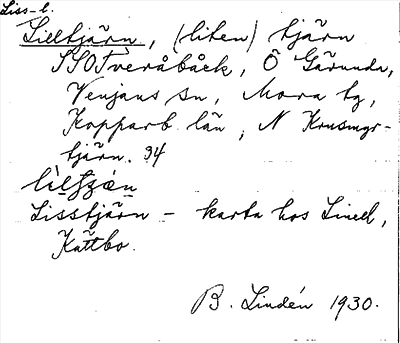 Liss-l.
Lilltjärn, (liten) tjärn
SSO Tveråbäck, Ö Gärunda,
Venjans sn, Mora tg,
Kopparb. län, N Krusmyr-
tjärn. 34
Lisstjärn - karta hos Lined,
Kättbo.
B. Lindén 1930.